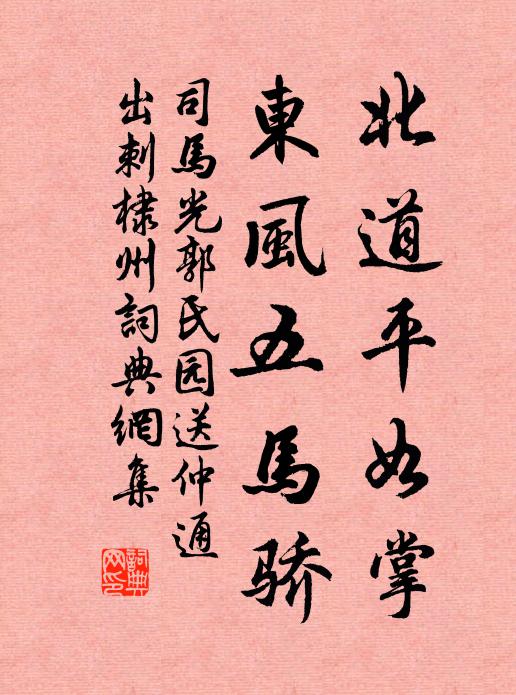 北道平如掌
東風五馬骄
司馬光郭氏园送仲通
出刺棣州詞典網集
詞典网印